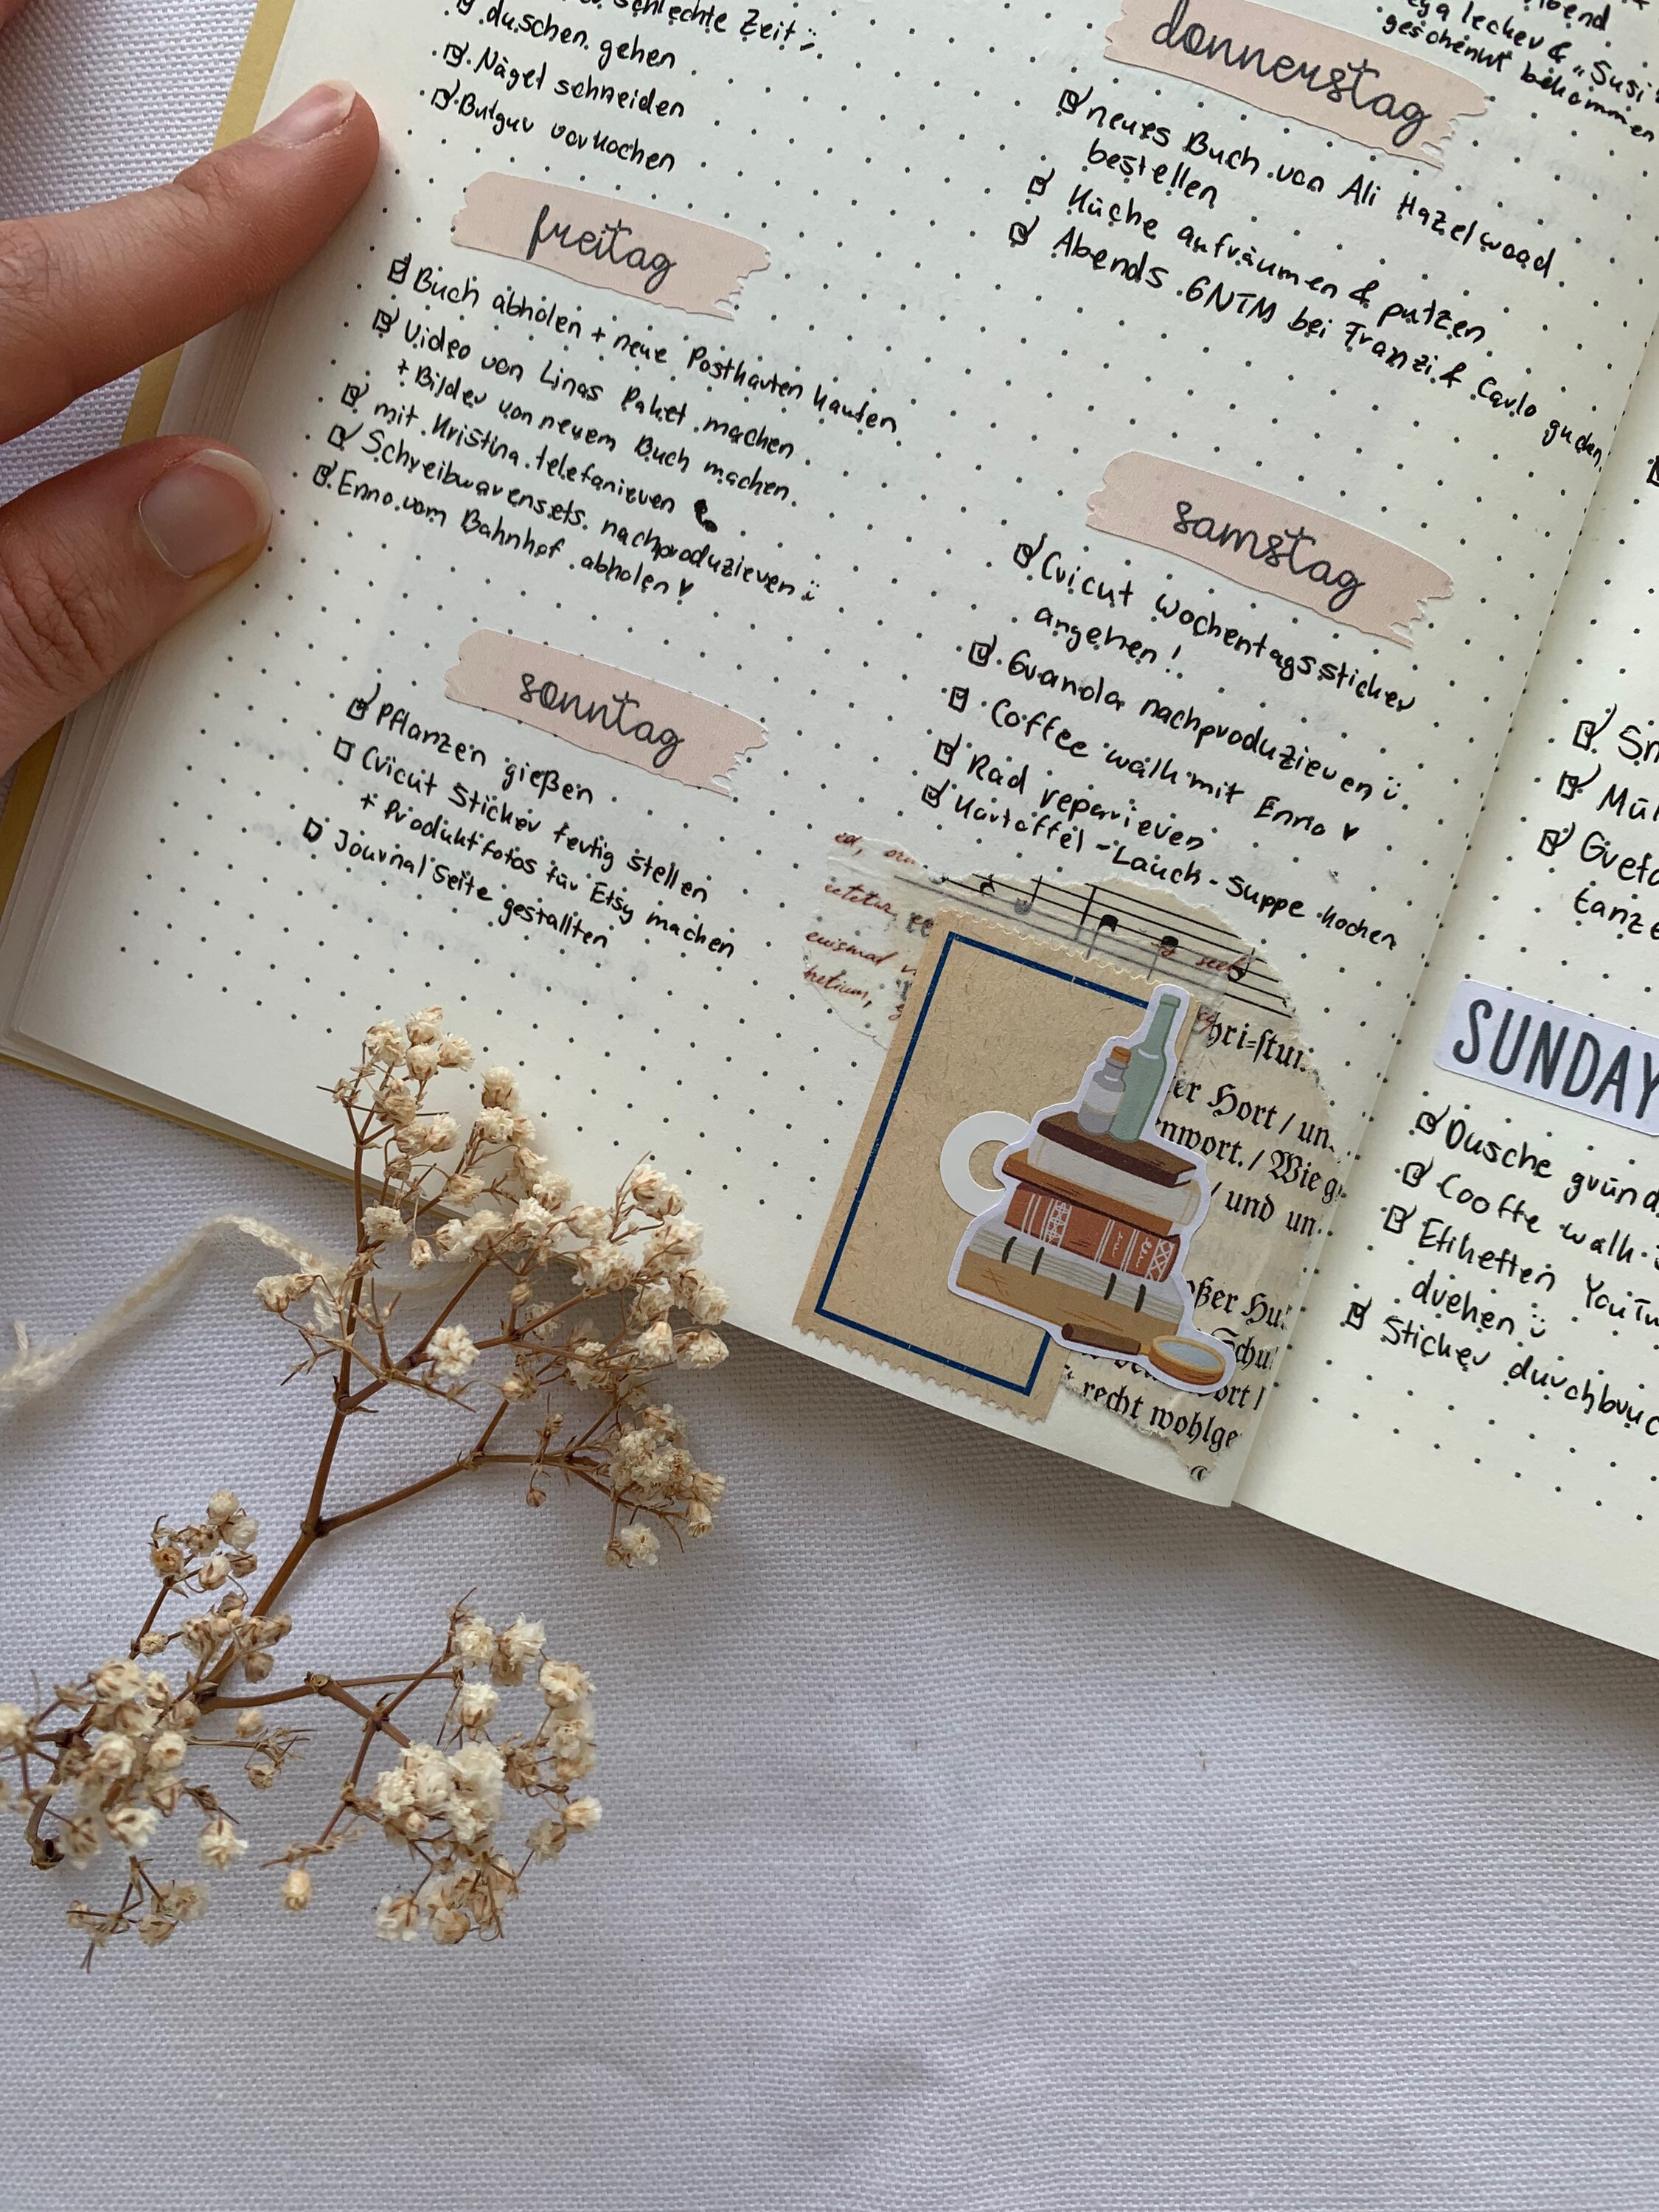 schlechte Zeit
duschen gehen
Nägel schneiden
Bulgur vorkochen
freitag
Buch abholen + neue Postkarten kaufen
Video von Linas Paket machen
+ Bilder von neuem Buch machen
mit Kristina telefonieren
Schreibwarensets nachproduzieren
Enno vom Bahnhof abholen
sonntag
Pflanzen gießen
Cricut Sticker fertig stellen
+ Produktfotos für Etsy machen
Journal Seite gestallten
lecker & „Susi"
geschenkt bekommen
donnerstag
neues Buch von Ali Hazelwood
bestellen
Küche aufräumen & putzen
Abends GNTM bei Franzi & Carlo gucken
samstag
Cricut Wochentagssticker
angehen!
Granola nachproduzieren
Coffee walk mit Enno
Rad reparieren
Kartoffel-Lauch-Suppe kochen
hri=stu
er Hort / un
nwort. / Wie
/ und un
oßer Hu
Schu
ort /
recht wohlge
tanz
SUNDAY
Dusche gründ
Cooffe walk
Etiketten YouTu
drehen
Sticker durchbruc